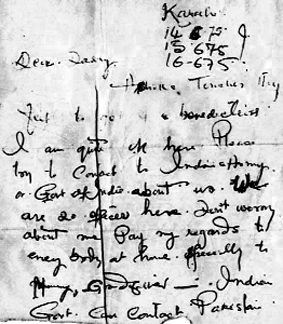 Karachi
14.6.75
15.6.75
16-6.75.
Dear Daddy,
Just to
I am quite ok here. Please
try to Contact to Indian Army
or Govt of India about us. We
are 20 officers here. Don't worry
about me. Pay my regards to
every body at home. specially to
Mummy, Grandfather — Indian
Govt. Can Contact Pakistan